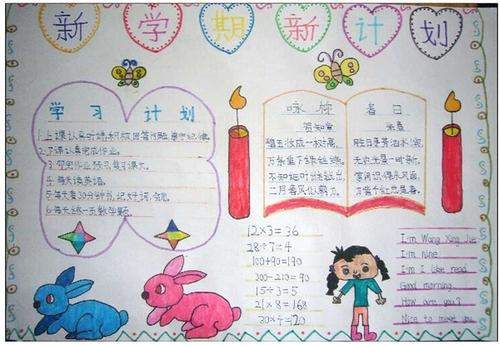 新学期新计划
学习计划
1.上课认真听讲,积极回答问题
2.下课认真完成作业。
3.作业预习复习课文。
4.每天读英语。
5.每天看30分钟书,记好词,
6.每天练一页数学题。
咏柳
贺知章
碧玉妆成一树高,
万条垂下绿丝绦。
不知细叶谁裁出,
二月春风似剪刀。
春日
朱熹
胜日寻芳泗水滨,
无边光景一时新。
等闲识得东风面,
万紫千红总是春。
12×3=36
28÷7=4
100+90=190
300-210=90
15÷3=5
21×8=168
30×4=120
I'm Wang Xing Jie
I'm nine
I'm I like read
Good morning
How are you?
Nice to meet you